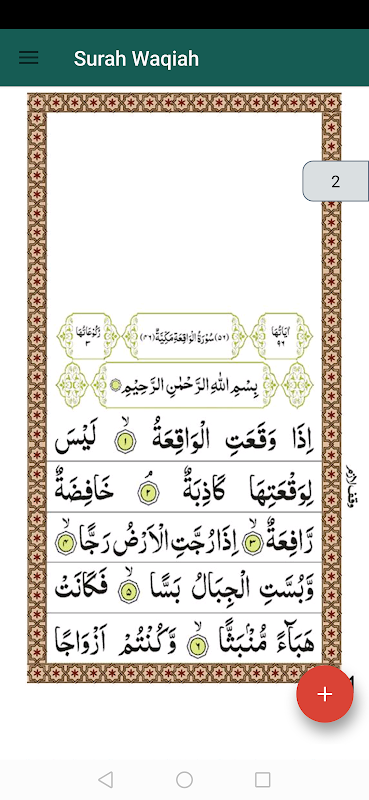 Surah Waqiah
2
اٰیَاتُهَا ۹۶
(۵۶) سُوْرَةُ الْوَاقِعَةِ مَكِّیَّةٌ (۴۶)
رُكُوْعَاتُهَا ۳
بِسْمِ اللّٰهِ الرَّحْمٰنِ الرَّحِیْمِ
اِذَا وَقَعَتِ الْوَاقِعَةُ ۙ۱ لَیْسَ
لِوَقْعَتِهَا كَاذِبَةٌ ۘ۲ خَافِضَةٌ
وقف لازم
رَّافِعَةٌ ۙ۳ اِذَا رُجَّتِ الْاَرْضُ رَجًّا ۙ۴
وَّ بُسَّتِ الْجِبَالُ بَسًّا ۙ۵ فَكَانَتْ
هَبَآءً مُّنْۢبَثًّا ۙ۶ وَّ كُنْتُمْ اَزْوَاجًا